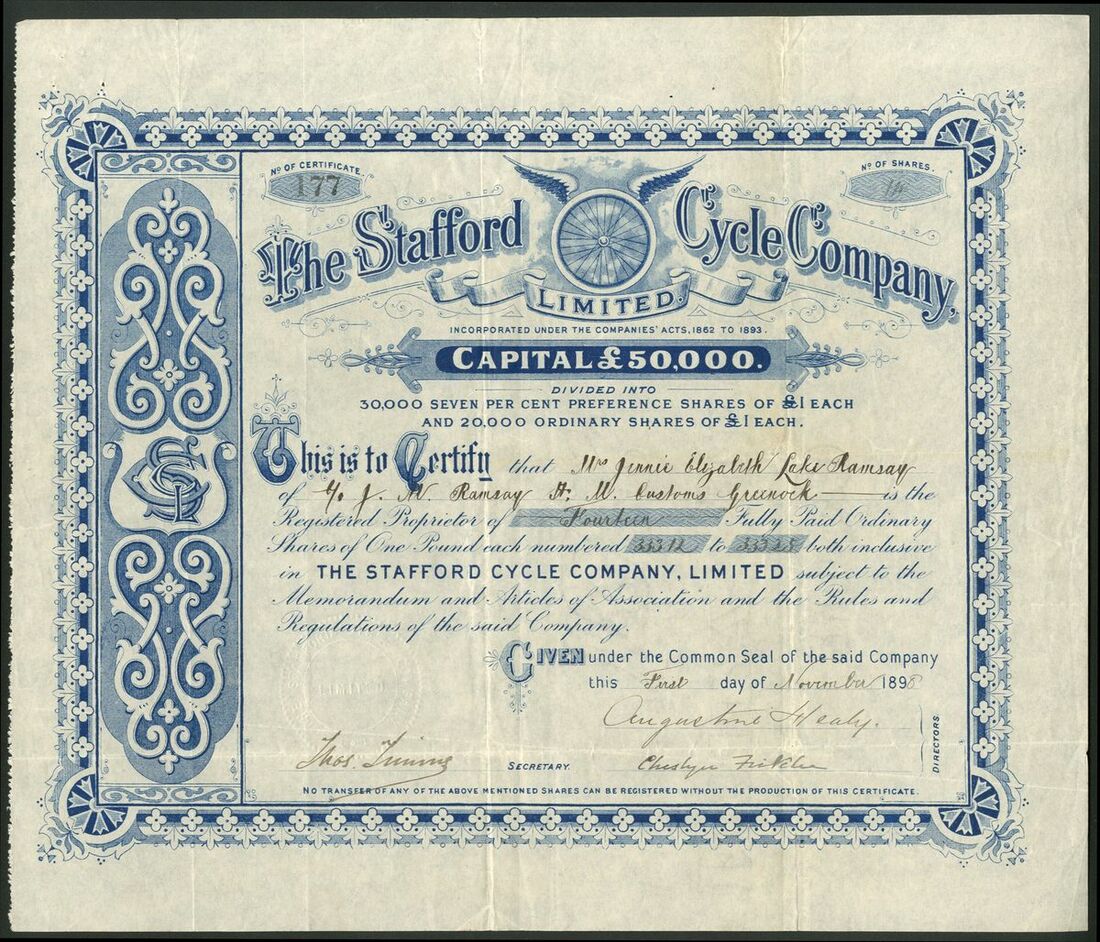 Nº OF CERTIFICATE.
177
Nº OF SHARES.
14
The Stafford Cycle Company,
LIMITED.
INCORPORATED UNDER THE COMPANIES' ACTS, 1862 TO 1893.
CAPITAL £50,000.
DIVIDED INTO
30,000 SEVEN PER CENT PREFERENCE SHARES OF £1 EACH
AND 20,000 ORDINARY SHARES OF £1 EACH.
This is to Certify that Mrs Jennie Elizabeth Lake Ramsay
of c/o J. W. Ramsay H. M. Customs Greenock is the
Registered Proprietor of Fourteen Fully Paid Ordinary
Shares of One Pound each numbered 33312 to 33325 both inclusive
in THE STAFFORD CYCLE COMPANY, LIMITED subject to the
Memorandum and Articles of Association and the Rules and
Regulations of the said Company.
GIVEN under the Common Seal of the said Company
this First day of November 1898
LIMITED
Augustine Healy.
DIRECTORS.
Thos. Timins
SECRETARY.
NO TRANSFER OF ANY OF THE ABOVE MENTIONED SHARES CAN BE REGISTERED WITHOUT THE PRODUCTION OF THIS CERTIFICATE.